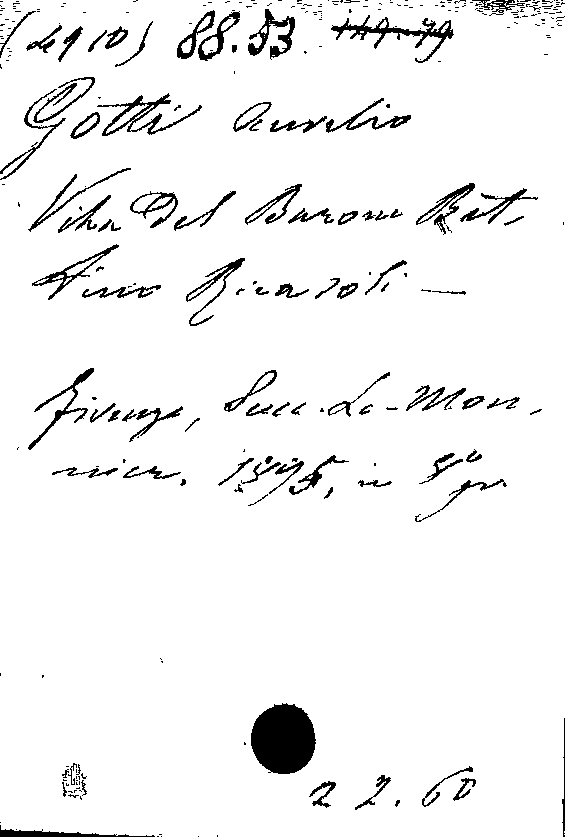 (Leg ID) 88.53. 149.79
Gotti Aurelio
Vita Del Barone Bet-
tino Ricasoli —
Firenze, Succ. Le-Mon-
nier, 1895, in 8º gr.
22.60